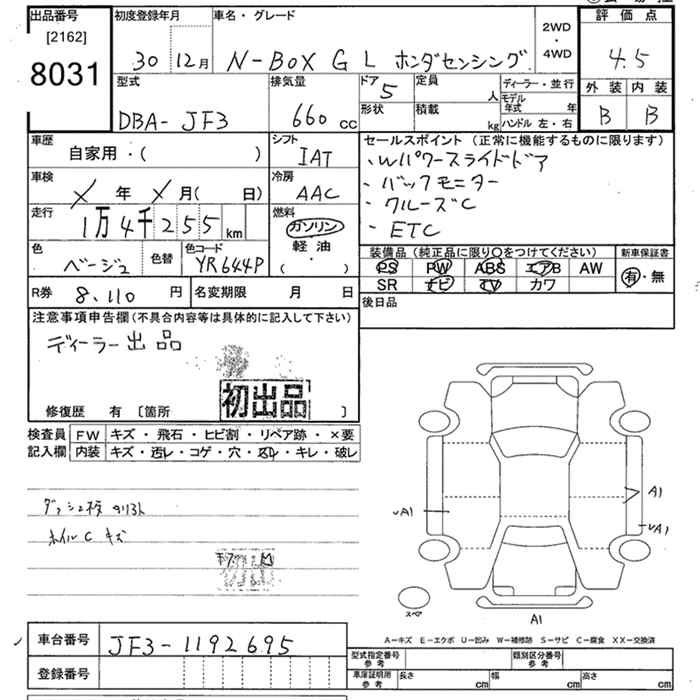 出品番号 初度登録年月 車名・グレード 2WD・4WD 評価点
[2162]
8031 30 12月 N-BOX G L ホンダセンシング 4.5
型式 排気量 ドア 5 定員 人 ディーラー・並行 外装 内装
DBA-JF3 660 cc 形状 積載 kg モデル年式 年 ハンドル 左・右 B B
車歴 自家用・( ) シフト IAT セールスポイント(正常に機能するものに限ります)
・Wパワースライドドア
車検 X 年 X 月( 日) 冷房 AAC ・バックモニター
・クルーズC
走行 1万4千255km 燃料 ガソリン 軽油・( ・ ) ・ETC
色 ベージュ 色替 色コード YR644P 装備品(純正品に限り○をつけてください) 新車保証書
PS PW ABS エアB AW 有・無
SR ナビ TV カワ
R券 8,110 円 名変期限 月 日 後日品
注意事項申告欄(不具合内容等は具体的に記入して下さい)
ディーラー出品
初出品
修復歴 有 [箇所 ]
検査員 FW キズ・飛石・ヒビ割・リペア跡・×要
記入欄 内装 キズ・汚レ・コゲ・穴・スレ・キレ・破レ
A1
A1
A1
ホイルC キズ
スペア
A1
A-キズ E-エクボ U-凹み W-補修跡 S-サビ C-腐食 XX-交換済
車台番号 JF3-1192695
型式指定番号 参考 類別区分番号 参考
登録番号 車庫証明所 参考 長さ cm 幅 cm 高さ cm